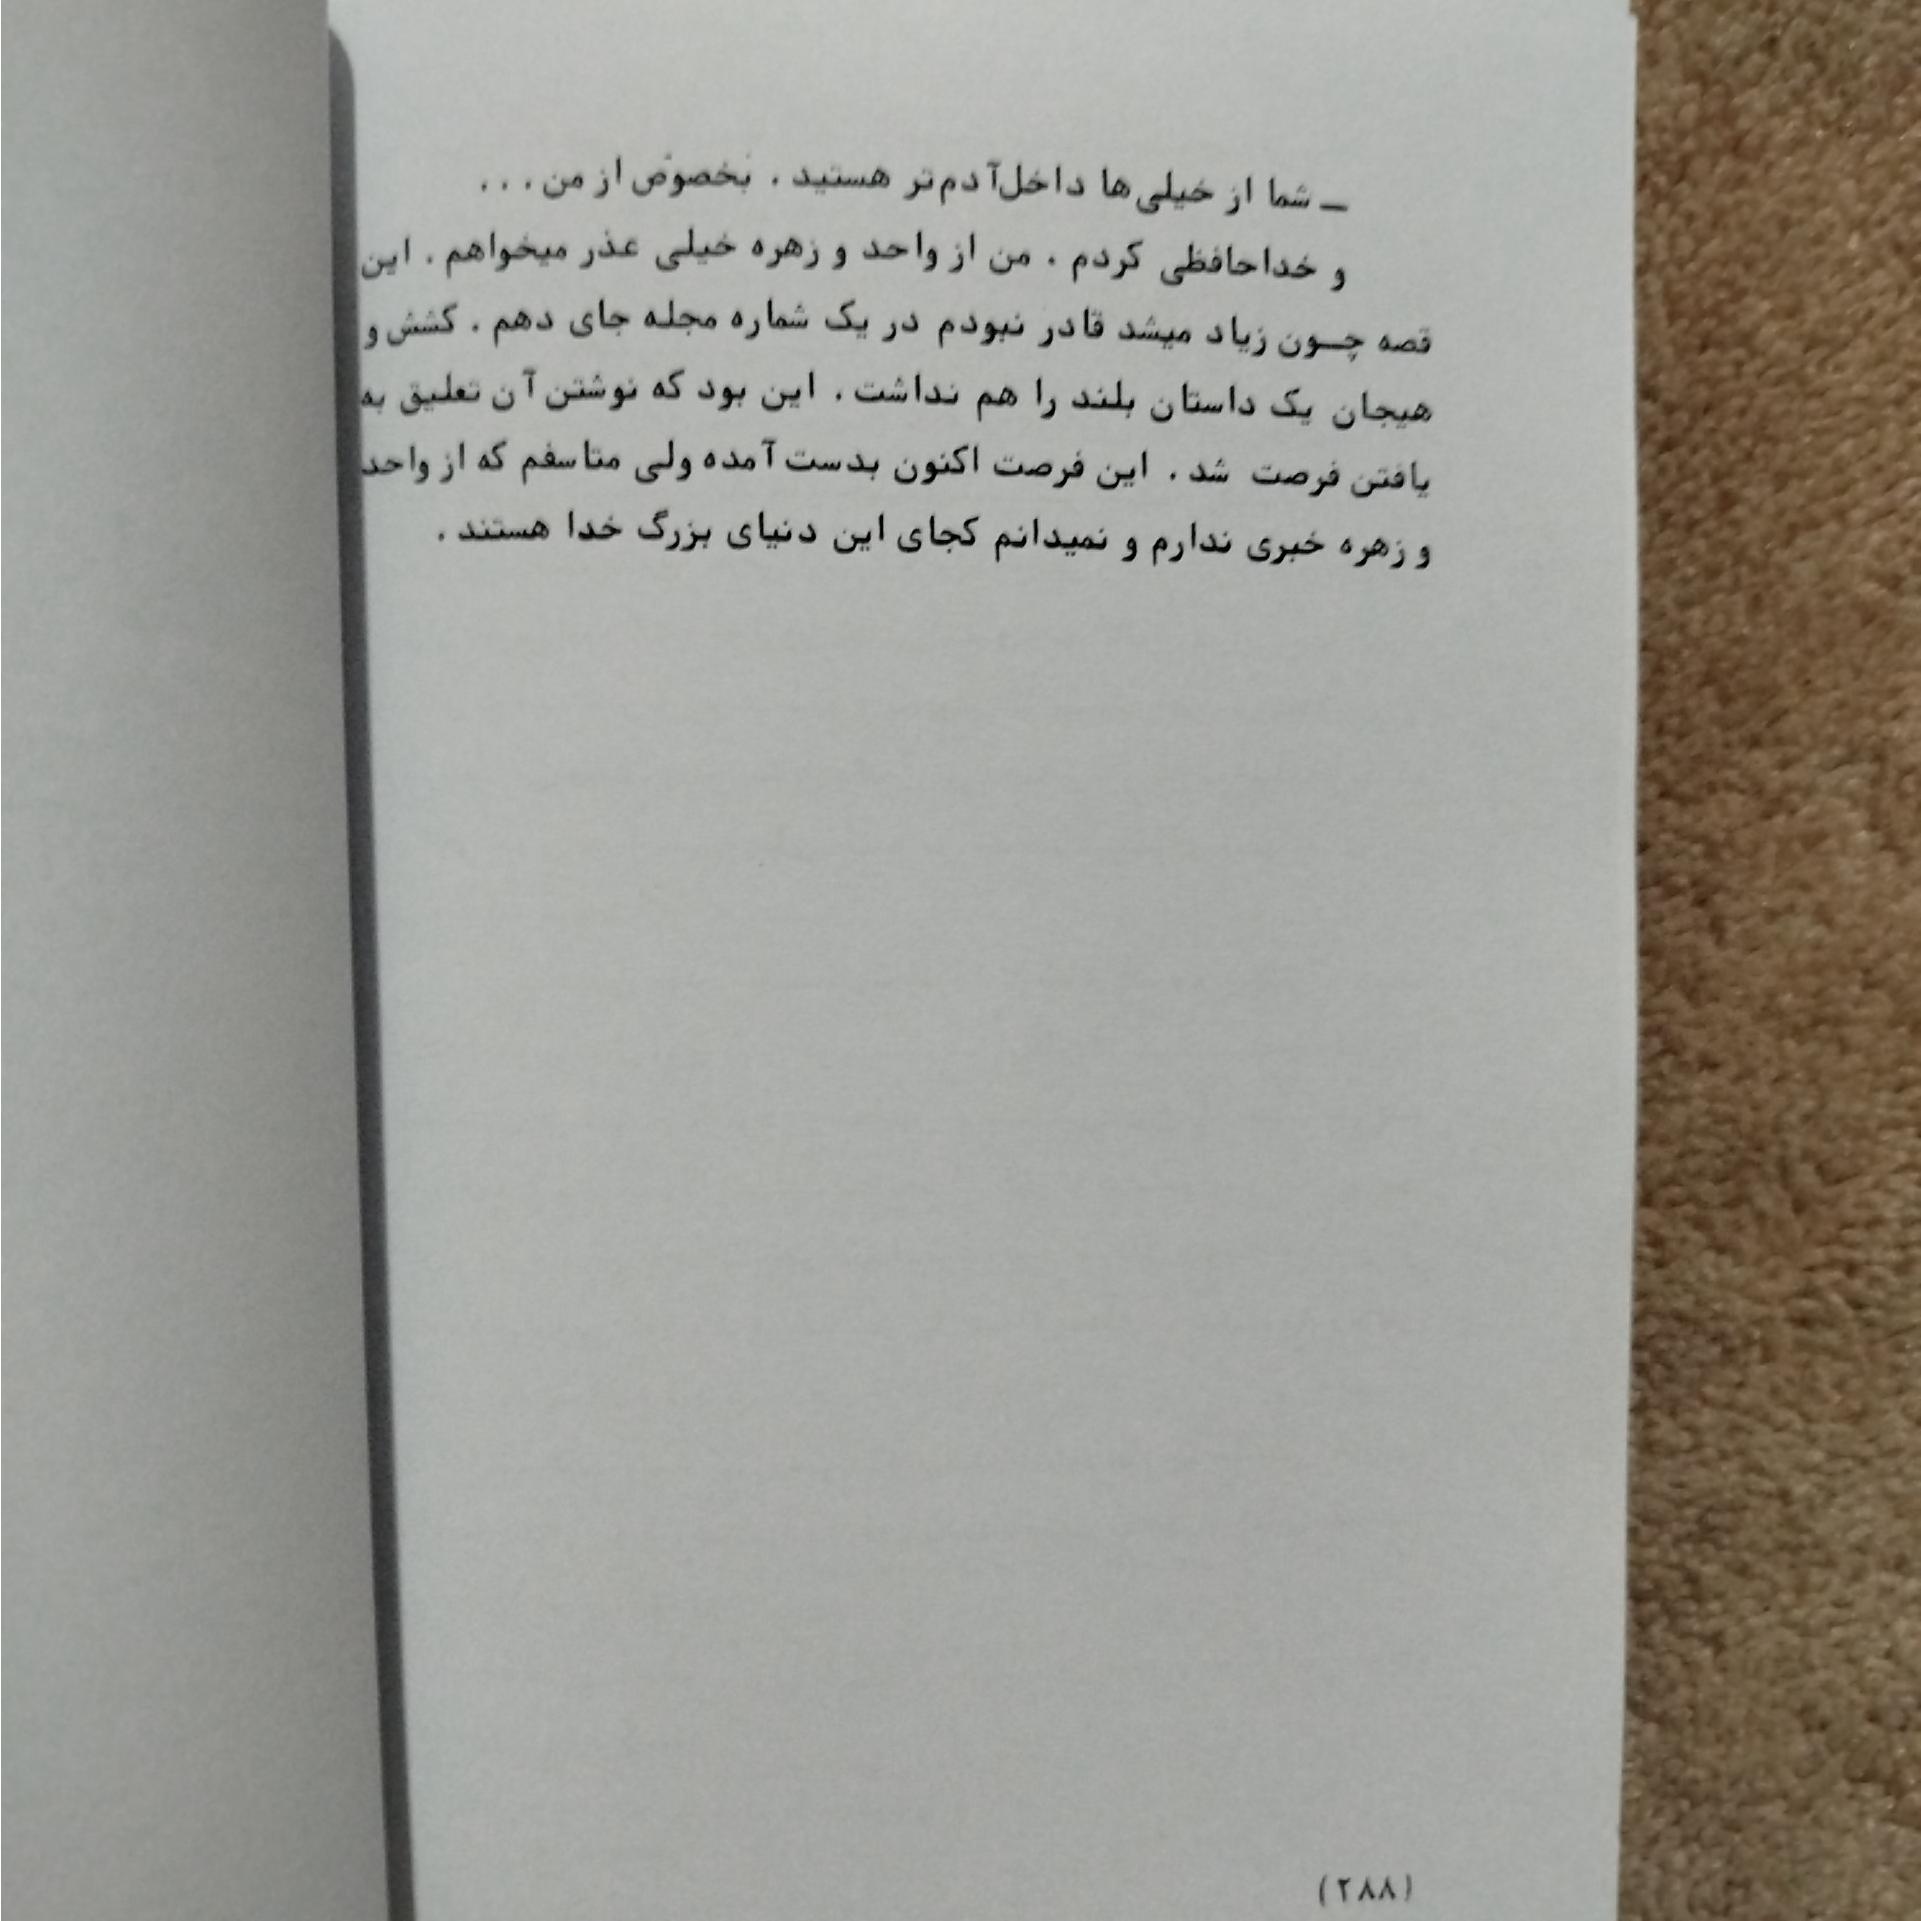 ــ شما از خیلی‌ها داخل‌آدم‌تر هستید . بخصوص از من . . .
و خداحافظی کردم . من از واحد و زهره خیلی عذر میخواهم . این
قصه چــون زیاد میشد قادر نبودم در یک شماره مجله جای دهم . کشش و
هیجان یک داستان بلند را هم نداشت . این بود که نوشتن آن تعلیق به
یافتن فرصت شد . این فرصت اکنون بدست آمده ولی متاسفم که از واحد
و زهره خبری ندارم و نمیدانم کجای این دنیای بزرگ خدا هستند .
(۲۸۸)